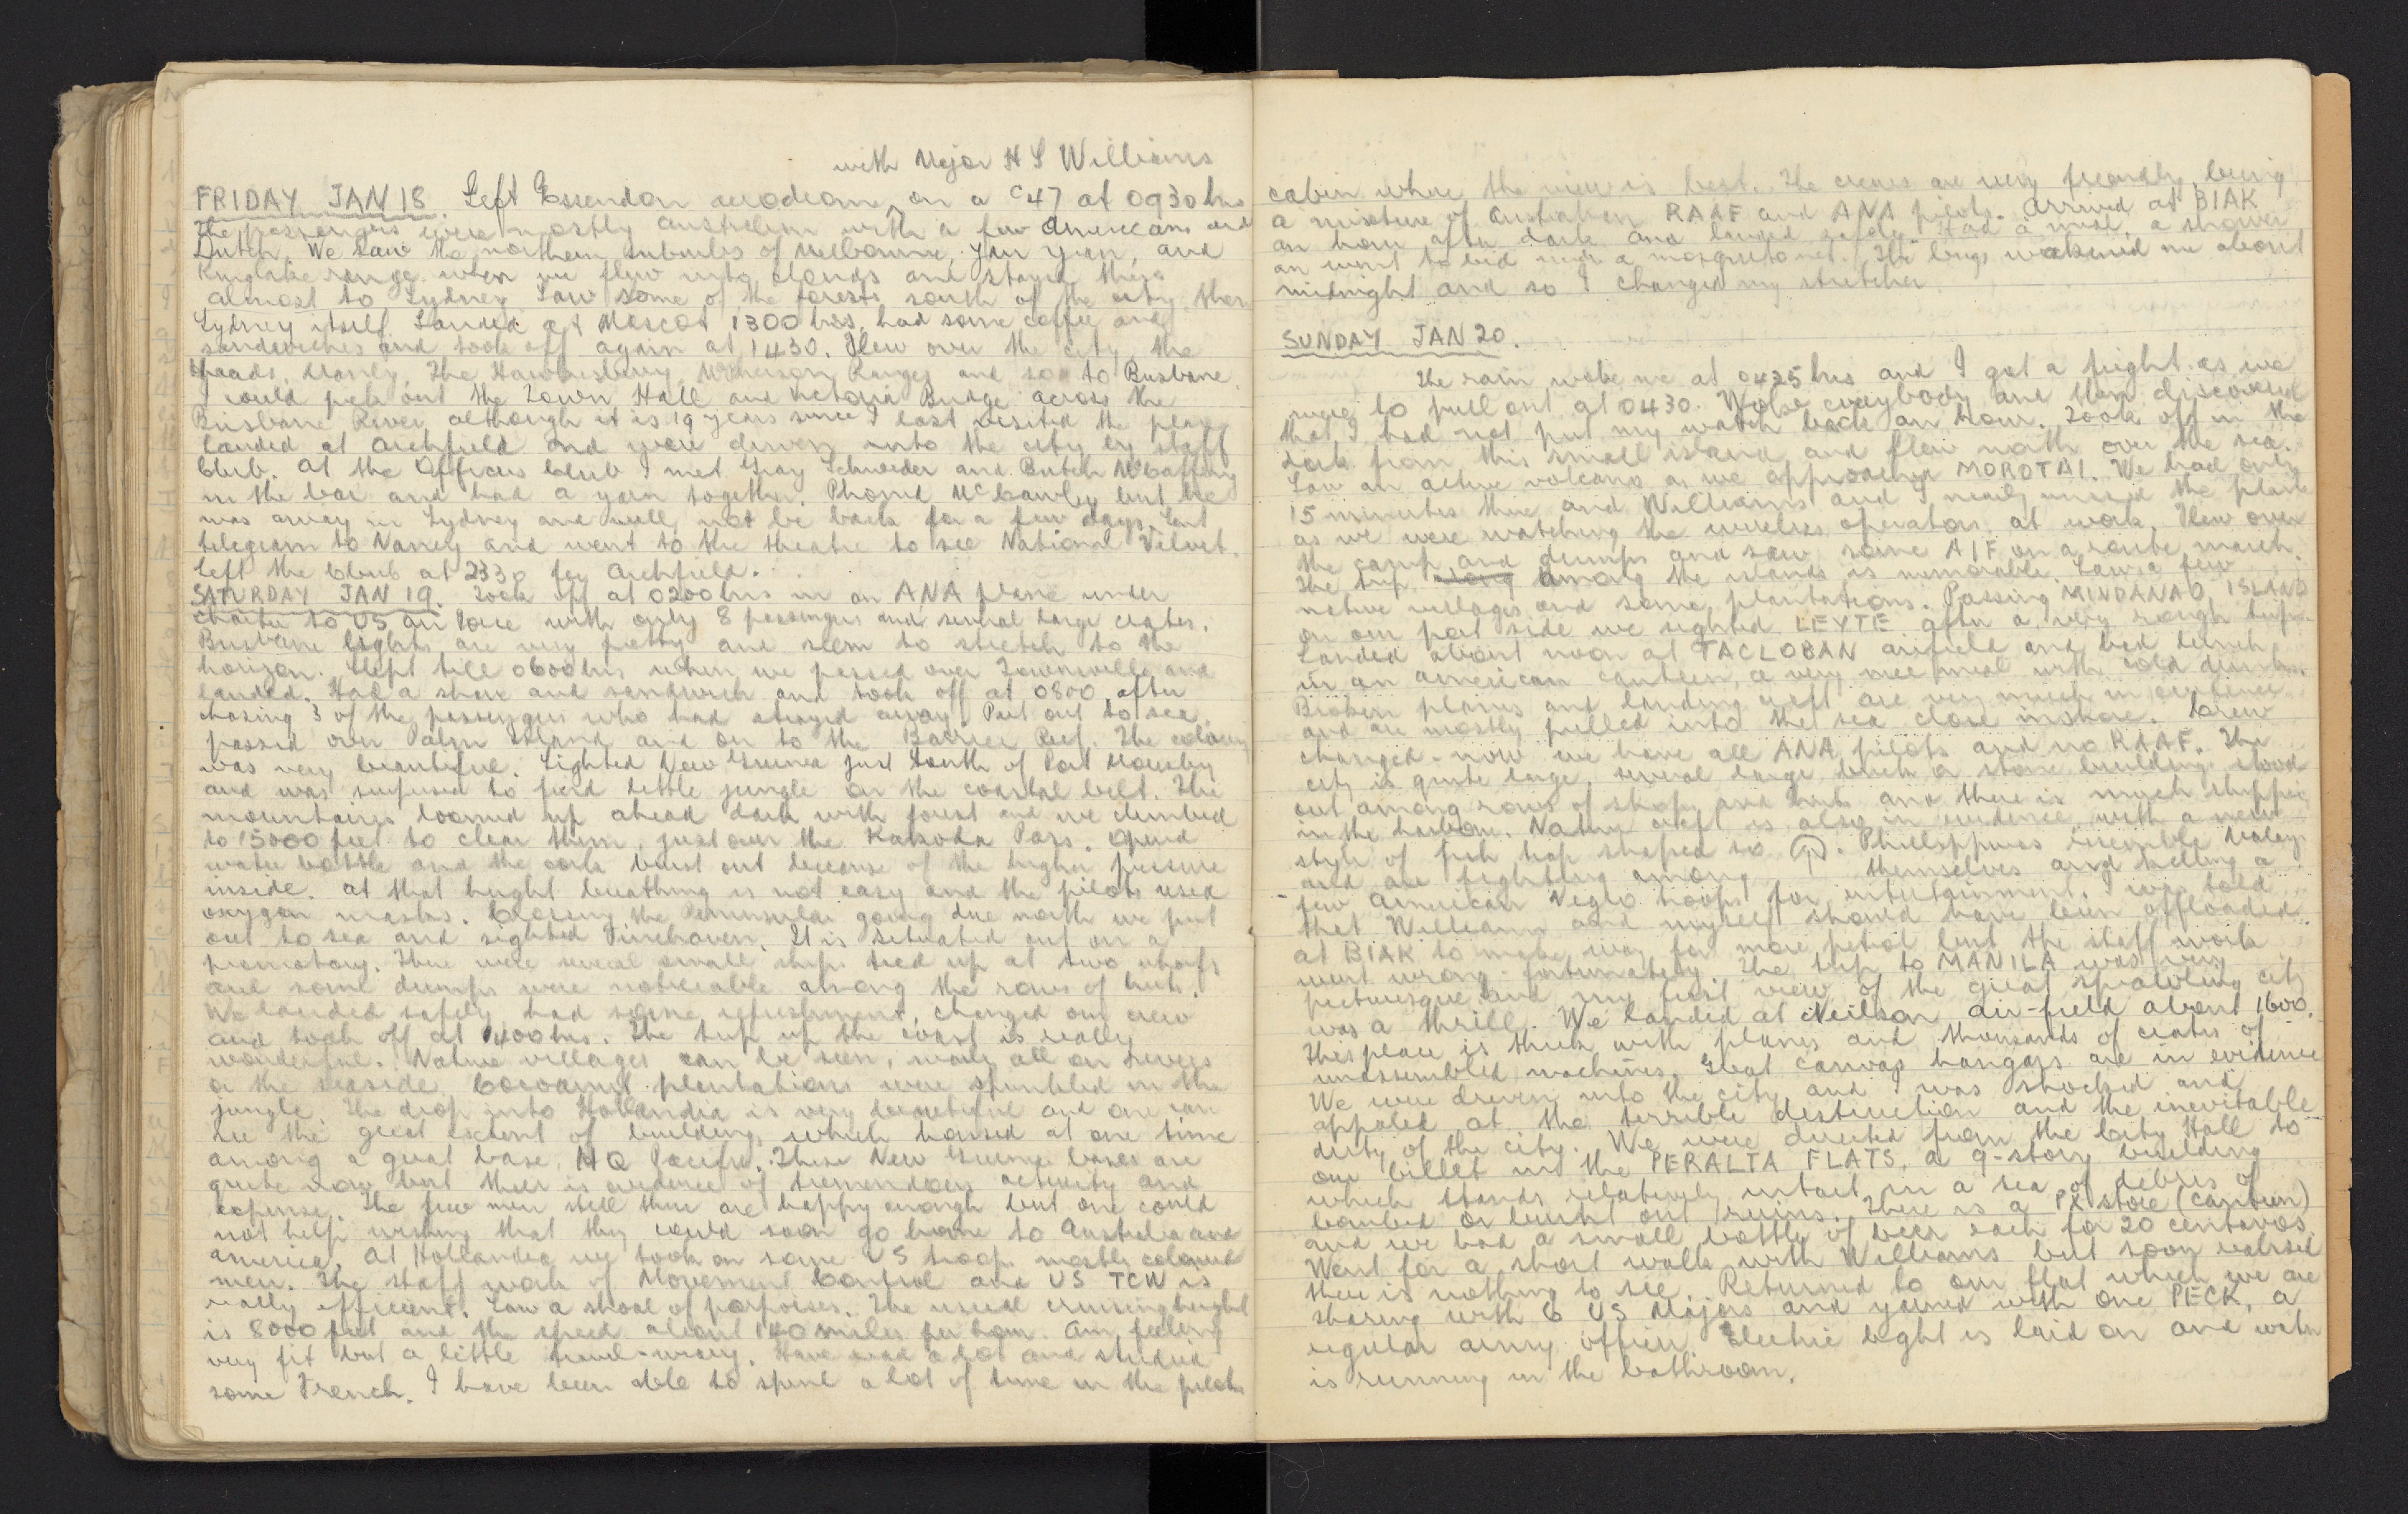 with Major H S Williams
FRIDAY JAN 18. Left Essendon aerodrome, on a C47 at 0930 hrs
The passengers were mostly Australian with a few Americans and
Dutch. We saw the northern suburbs of Melbourne, Yan Yean, and
Kinglake range when we flew into clouds and stayed there
almost to Sydney. Saw some of the forests south of the city then
Sydney itself. Landed at Mascot 1300 hrs, had some coffee and
sandwiches and took off again at 1430. Flew over the city, the
Heads, Manly, The Hawkesbury, McPherson Ranges and so to Brisbane.
I could pick out the Town Hall and Victoria Bridge across the
Brisbane River, although it is 19 years since I last visited the place
Landed at Archfield and were driven into the city by staff
Club. At the Officers Club I met Gray Schneider and Butch
in the bar and had a yarn together. Phoned McCawley but he
was away in Sydney and will not be back for a few days. Sent
telegram to Nancy and went to the theatre to see National Velvet.
Left the Club at 2330 for Archfield.
SATURDAY JAN 19. Took off at 0200 hrs in an ANA plane under
charter to US Air Force with only 8 passengers and several large crates.
Brisbane lights are very pretty and seem to stretch to the
horizon. Slept till 0600 hrs when we passed over Townsville and
landed. Had a shave and sandwich and took off at 0800 after
chasing 3 of the passengers who had strayed away. Put out to sea,
passed over Palm Island and on to the Barrier Reef. The colouring
was very beautiful. Sighted New Guinea just South of Port Moresby
and was surprised to find little jungle on the coastal belt. The
mountains loomed up ahead dark with forest and we climbed
to 15000 feet to clear them, just over the Kakoda Pass. Opened
water bottle and the cork burst out because of the higher pressure
inside. At that height breathing is not easy and the pilots used
oxygen masks. Crossing the Peninsular going due north we put
out to sea and sighted Finchaven. It is situated out on a
promontory. There were several small ships tied up at two wharfs
and some dumps were noticeable among the rows of huts.
We landed safely, had some refreshment, changed our crew
and took off at 1400 hrs. The trip up the coast is really
wonderful. Native villages can be seen, nearly all on rivers
or the seaside. Cocoanut plantations were sprinkled in the
jungle. The drop into Hollandia is very beautiful and one can
see the great extent of buildings which housed at one time
among a great base, HQ Pacific. These New Guinea bases are
quite now but there is evidence of tremendous activity and
expense. The few men still there are happy enough but one could
not help wishing that they could soon go home to Australia and
America. At Hollandia we took on some US troops mostly coloured
men. The staff work of Movement Control and US TCW is
really efficient. Saw a shoal of porpoises. The usual cruising height
is 8000 feet and the speed about 140 miles per hour. Am feeling
very fit but a little travel-weary. Have read a lot and studied
some French. I have been able to spend a lot of time in the pilots
cabin where the view is best. The crews are very friendly, being
a mixture of Australian RAAF and ANA pilots. Arrived at BIAK
an hour after dark and landed safely. Had a meal, a shower
an went to bed under a mosquito net. The bugs wakened me about
midnight and so I changed my stretcher
SUNDAY JAN 20.
The rain woke me at 0425 hrs and I got a fright as we
were to pull out at 0430. Woke everybody and then discovered
that I had not put my watch back an hour. Took off in the
dark from this small island and flew north over the sea.
Saw an active volcano as we approached MOROTAI. We had only
15 minutes there and Williams and I nearly missed the plane
as we were watching the wireless operators at work. Flew over
the camp and dumps and saw some AIF on a route march.
The trip along among the islands is memorable. Saw a few
native villages and some plantations. Passing MINDANAO ISLAND
on our port side we sighted LEYTE after a very rough trip.
Landed about noon at TACLOBAN airfield and had lunch
in an American canteen, a very nice meal with cold drinks.
Broken planes and landing craft are very much in evidence
and are mostly pulled into the sea close inshore. Crew
changed - now we have all ANA pilots and no RAAF. The
city is quite large, several large brick or stone buildings stood
out among rows of shops and huts and there is much shipping
in the harbour. Native craft is also in evidence, with a new
style of fish trap shaped so. Phillippinos resemble Malays
and are fighting among themselves and killing a
few American Negro troops for entertainment. I was told
that Williams and myself should have been offloaded
at BIAK to make way for more petrol but the staff work
went wrong - fortunately. The trip to MANILA was very
picturesque and my first view of the great sprawling city
was a thrill. We landed at Neilson air-field about 1600.
This place is thick with planes and thousands of crates of
unassembled machines. Great canvas hangars are in evidence
We were driven into the city and I was shocked and
appaled at the terrible destruction and the inevitable
dirty of the city. We were directed from the City Hall to
our billet in the PERALTA FLATS, a 9-story building
which stands relatively intact in a sea of debris of
bombed or burnt out ruins. There is a PX store (canteen)
and we had a small bottle of beer each for 20 centavos.
Went for a short walk with Williams but soon realised
there is nothing to see. Returned to our flat which we are
sharing with 6 US Majors and yarned with one PECK, a
regular army officer. Electric light is laid on and water
is running in the bathroom.